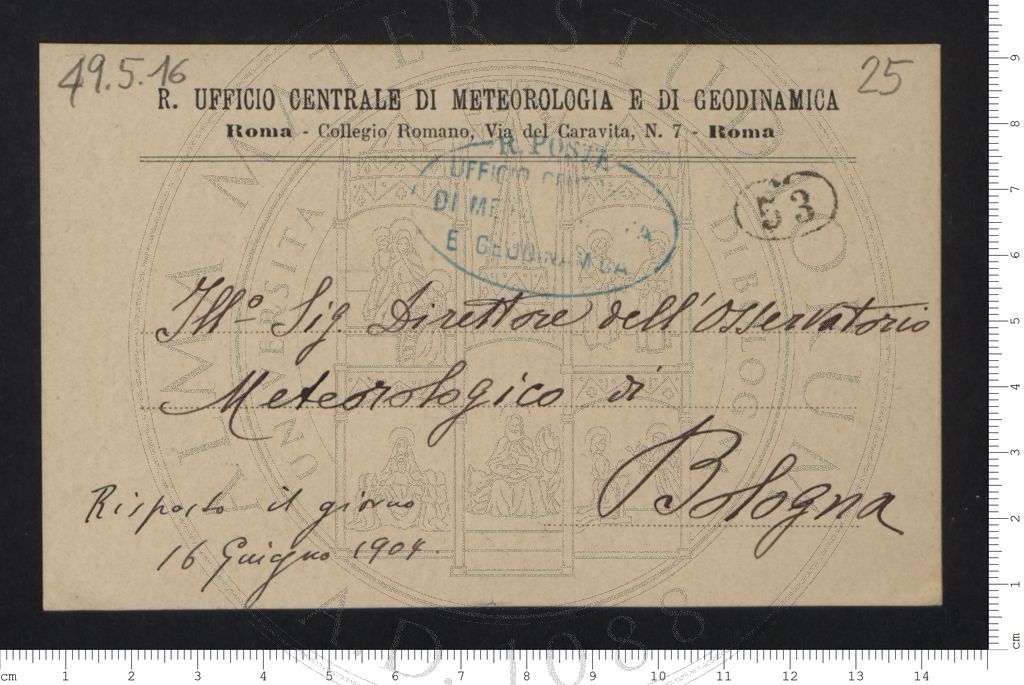 49.5.16
25
R. UFFICIO CENTRALE DI METEOROLOGIA E DI GEODINAMICA
Roma - Collegio Romano, Via del Caravita, N. 7 - Roma
R. POSTE
UFFICIO CENTRALE
DI ME
E GEODINAMICA
53
Ill.º Sig. Direttore dell'Osservatorio
Meteorologico di
Bologna
Risposto il giorno
16 Giugno 1904.
ALMA MATER STUDIORUM
UNIVERSITA DI BOLOGNA
A.D. 1088
cm 1 2 3 4 5 6 7 8 9 10 11 12 13 14
9
8
7
6
5
4
3
2
1
cm